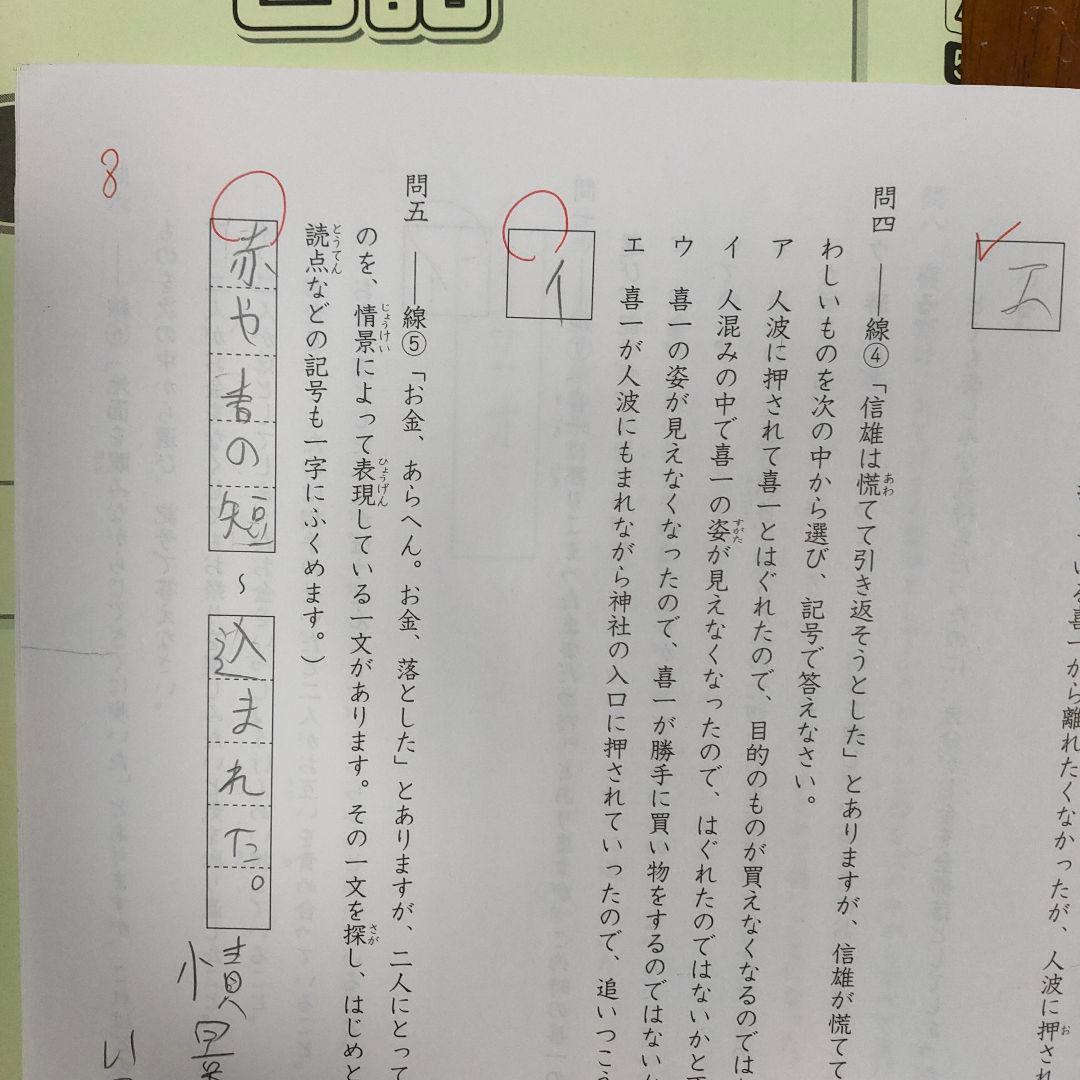 エ
問四 ――線④「信雄は慌てて引き返そうとした」とありますが、信雄が慌てて
わしいものを次の中から選び、記号で答えなさい。
ア 人波に押されて喜一とはぐれたので、目的のものが買えなくなるのでは
イ 人混みの中で喜一の姿が見えなくなったので、はぐれたのではないかと
ウ 喜一の姿が見えなくなったので、喜一が勝手に買い物をするのではない
エ 喜一が人波にもまれながら神社の入口に押されていったので、追いつこう
イ
問五 ――線⑤「お金、あらへん。お金、落とした」とありますが、二人にとって
のを、情景によって表現している一文があります。その一文を探し、はじめと
読点などの記号も一字にふくめます。）
赤や青の短～込まれた。
8